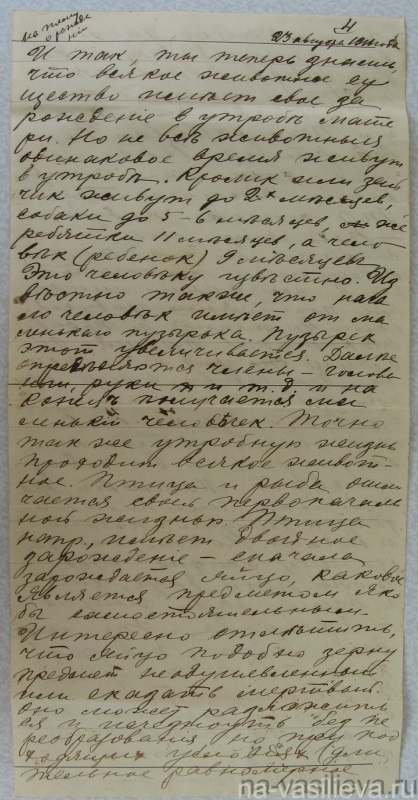 4
23 августа
И так, ты теперь знаешь,
что всякое животное су
щество имѣет свое за
рождение в утробѣ мате
ри. Но не всѣ животныя
одинаковое время живут
в утробѣ. Кролик или зай
чик живут до 2х мѣсяцев,
собаки до 5-6 мѣсяцев, же
ребятки 11 мѣсяцев, а чело
вѣк (ребенок) 9 мѣсяцев.
Это человѣку извѣстно. Из
вѣстно также, что нача
ло человѣк имѣет от ма
ленькаго пузырька. Пузырек
этот увеличивается. Далее
опредѣляются члены – голова
руки и т.д. и на
конец получается ма
ленькiй человѣчек. Точно
так же утробную жизнь
проводит всякое живот-
ное. Птица и рыба отли
чается своей первоначаль
ной жизнью. Птица
напр., имѣет двойное
зарождение – сначала
зарождается яйцо, каковое
является предметом яко
бы самостоятельным.
Интересно отмѣтить,
что яйцо подобно зерну
предмет неодушевленный
или сказать мертвый.
Оно может разложить
ся и исчезнуть без пе
реобразования но при под
ходящих условiях (дли
тельное равномѣрное
na-vasilieva.ru